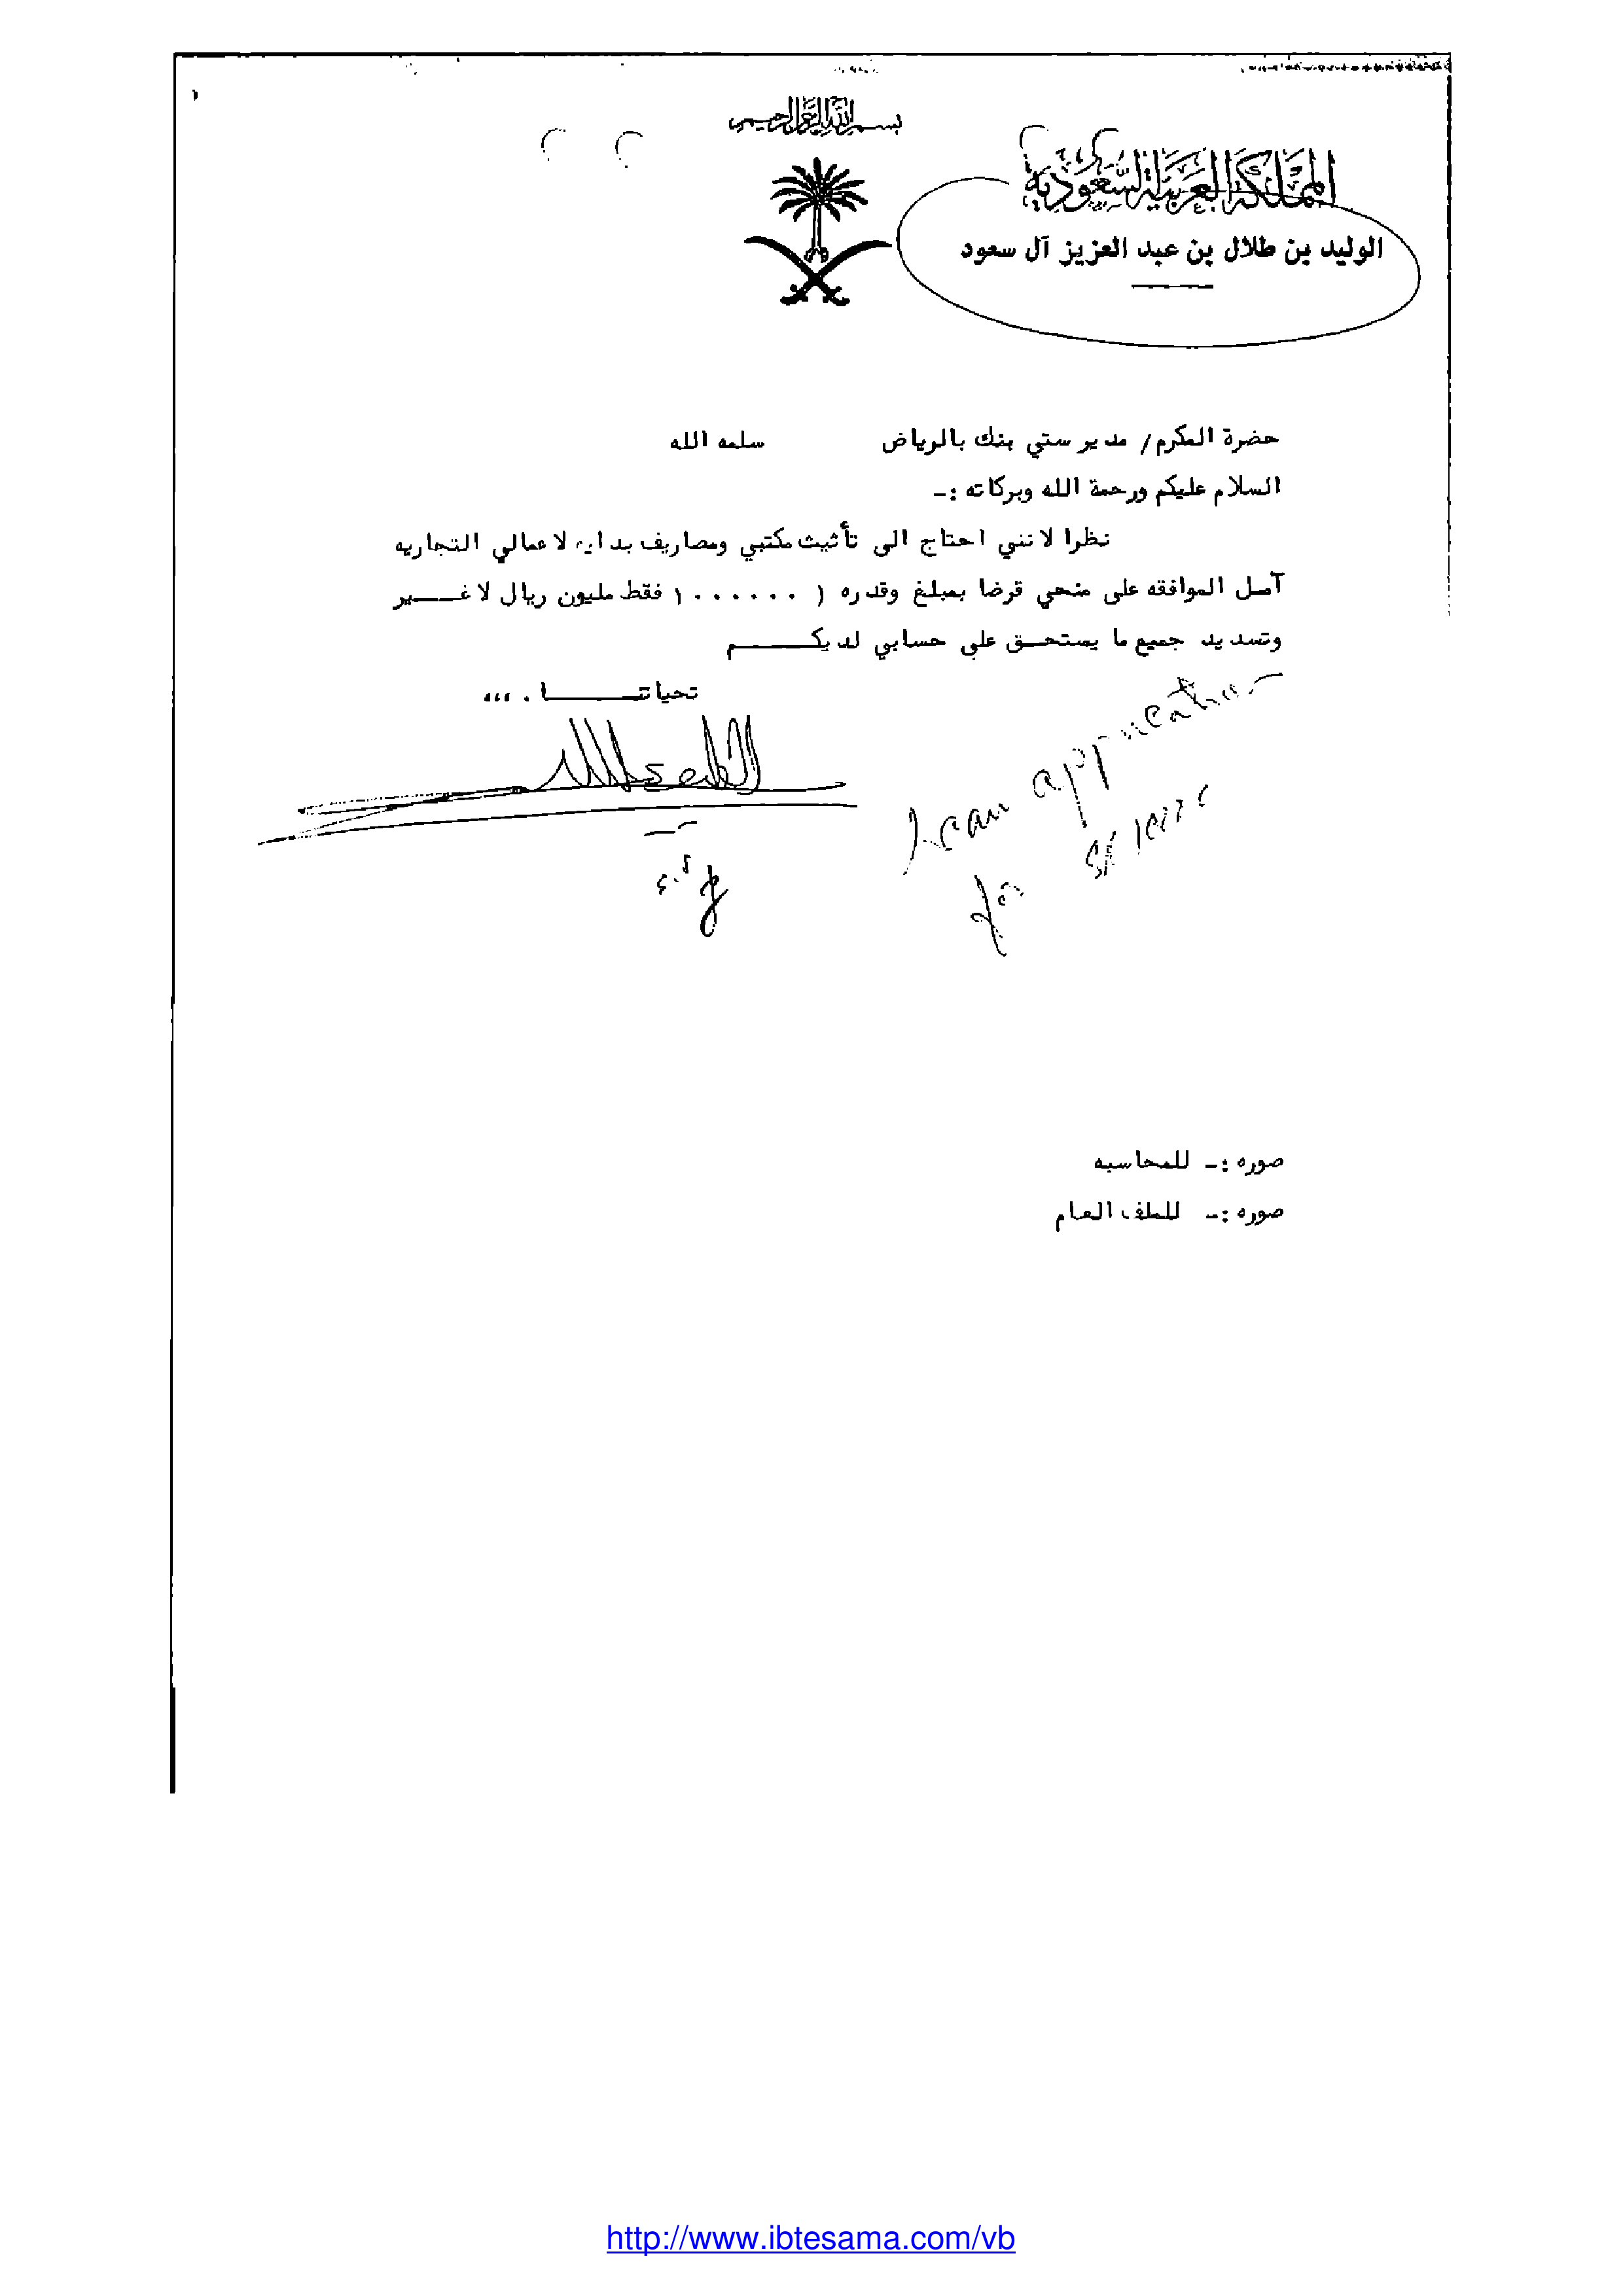 بسم الله الرحمن الرحيم
المملكة العربية السعودية
الوليد بن طلال بن عبد العزيز آل سعود
حضرة المكرم/ مدير ستي بنك بالرياض سلمه الله
السلام عليكم ورحمة الله وبركاته :-
نظرا لانني احتاج الى تأثيث مكتبي ومصاريف بدايه لاعمالي التجاريه
آمل الموافقه على منحي قرضا بمبلغ وقدره ( ١٠٠٠٠٠٠ فقط مليون ريال لاغـــير
وتسديد جميع ما يستحـق على حسابي لديكــــــم
تحياتنــــــــا . ،،،
Loan application
for SR
صوره :- للمحاسبه
صوره :- للملف العام
http://www.ibtesama.com/vb